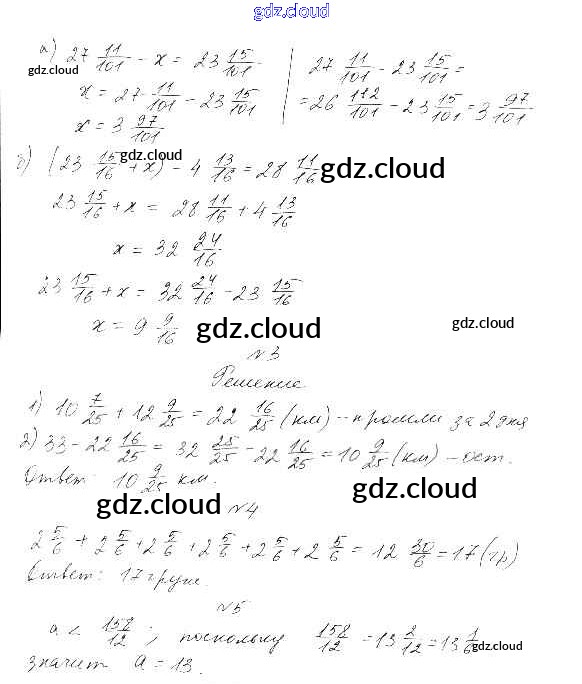 gdz.cloud
а) 27 11/101 - x = 23 15/101 | 27 11/101 - 23 15/101 =
gdz.cloud
x = 27 11/101 - 23 15/101 | = 26 112/101 - 23 15/101 = 3 97/101
x = 3 97/101
gdz.cloud
б) (23 15/16 + x) - 4 13/16 = 28 11/16
gdz.cloud
23 15/16 + x = 28 11/16 + 4 13/16
x = 32 24/16
23 15/16 + x = 32 24/16 - 23 15/16
x = 9 9/16
gdz.cloud
gdz.cloud
№3
Решение
1) 10 7/25 + 12 9/25 = 22 16/25 (км) - прошли за 2 дня
2) 33 - 22 16/25 = 32 25/25 - 22 16/25 = 10 9/25 (км) - ост.
Ответ: 10 9/25 км.
gdz.cloud
gdz.cloud
№4
2 5/6 + 2 5/6 + 2 5/6 + 2 5/6 + 2 5/6 + 2 5/6 = 12 30/6 = 17 (гр)
Ответ: 17 груш.
№5
a < 158/12; поскольку 158/12 = 13 2/12 = 13 1/6
gdz.cloud
значит a = 13.
gdz.cloud